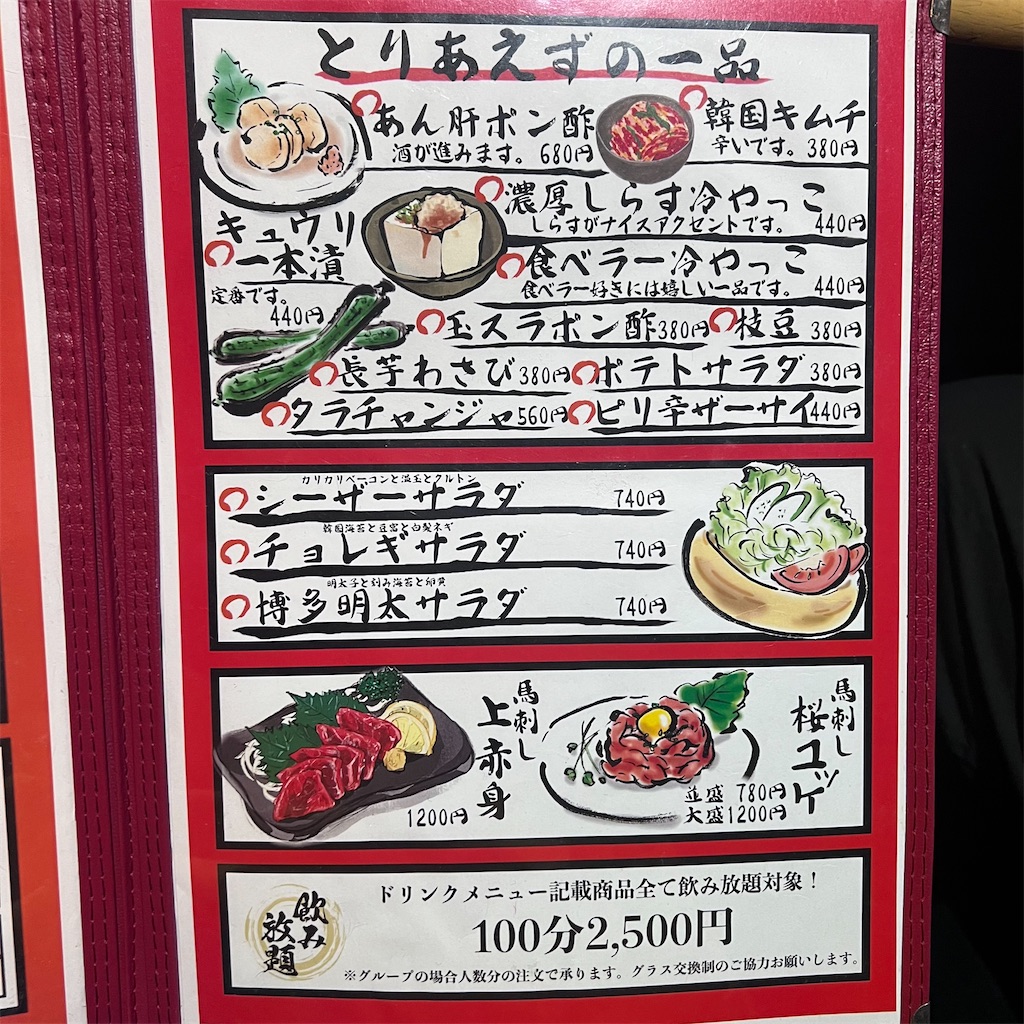 とりあえずの一品
あん肝ポン酢
酒が進みます。 680円
韓国キムチ
辛いです。 380円
濃厚しらす冷やっこ
しらすがナイスアクセントです。 440円
キュウリ
一本漬
定番です。
440円
食べラー冷やっこ
食べラー好きには嬉しい一品です。 440円
玉スラポン酢 380円
枝豆 380円
長芋わさび 380円
ポテトサラダ 380円
タラチャンジャ 560円
ピリ辛ザーサイ 440円
カリカリベーコンと温玉とクルトン
シーザーサラダ 740円
韓国海苔と豆腐と白髪ネギ
チョレギサラダ 740円
明太子と刻み海苔と卵黄
博多明太サラダ 740円
馬刺し
上赤身
1200円
馬刺し
桜ユッケ
並盛 780円
大盛1200円
飲み
放題
ドリンクメニュー記載商品全て飲み放題対象！
100分2,500円
※グループの場合人数分の注文で承ります。グラス交換制のご協力お願いします。